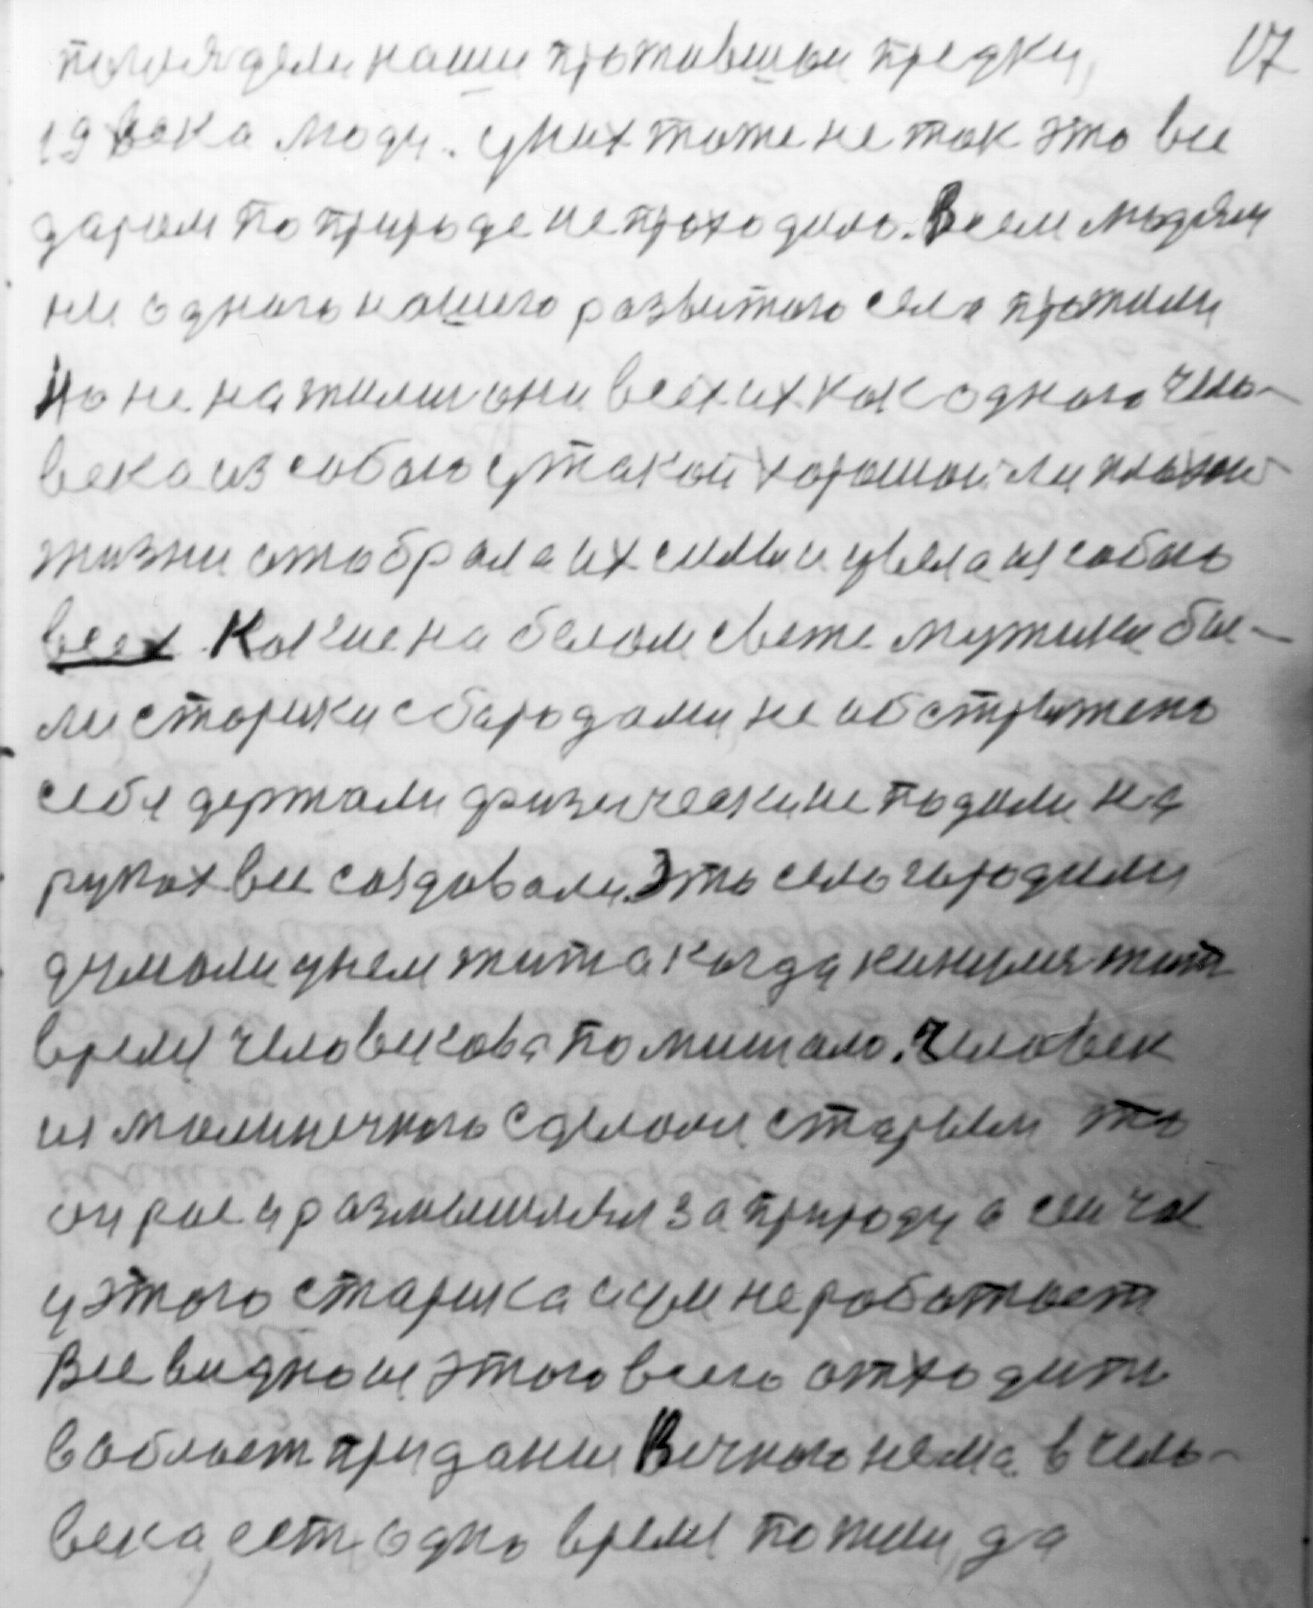 17
поглядели наши прожившыи предки,
19 века люди. у них тоже не так это все
даром по природе не проходило. Всем людям
не одного нашего развитого села прожили
Но не нажилися они всех их как одного чело-
века из собою у такой хорошои ли плохои
жизни отобрала их силы и увела из собою
всех Какие на белом свете мужики бы-
ли старики с бародами, не обстрыжено
себя держали физически не подали на
руках все создовали. Это село городили
думали у нем жить а когда кинулися жить
время человекова помишало. Человек
из молинечкого сделали старым то
он рос и размышлял за природу а сичас
у этого старика и ум не работает
Все видно из этого всего отходить
в област придания Вечного нема в чело-
века, ест одно время пожил, да